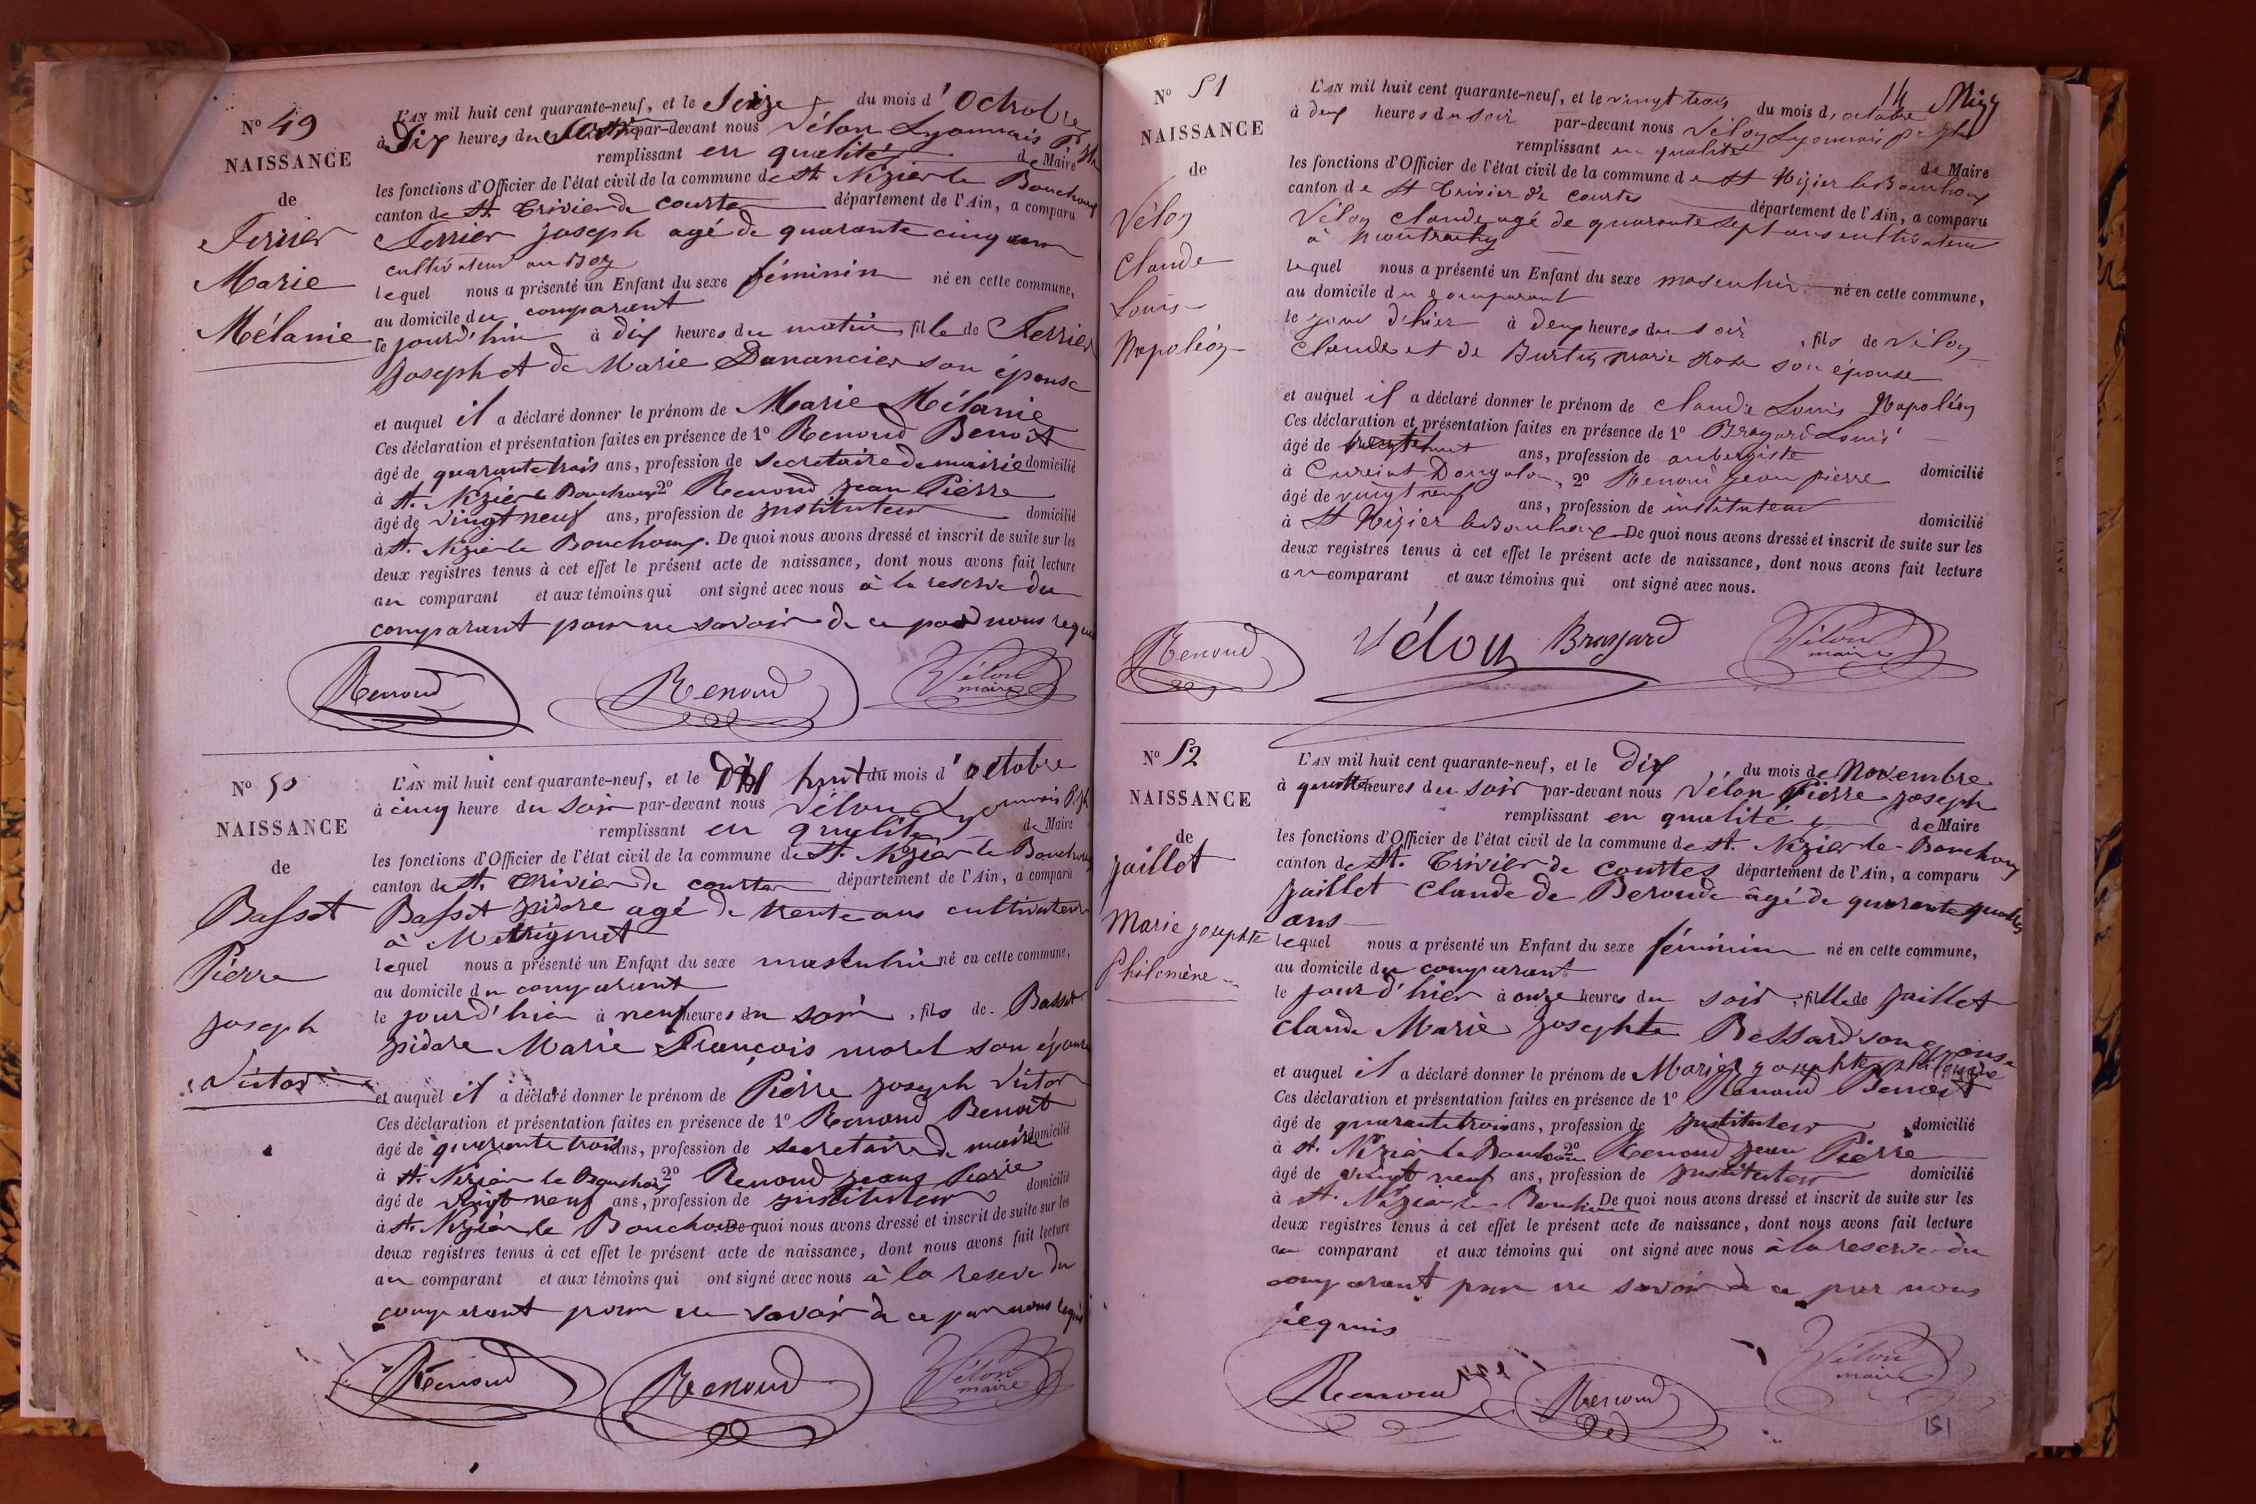 N° 49
NAISSANCE
de
Ferrier
Marie
Mélanie
L'AN mil huit cent quarante-neuf, et le Seize du mois d'Octobre
à Dix heures du matin par-devant nous Vélon Lyonnais P. Jh
remplissant en qualité de Maire
les fonctions d'Officier de l'état civil de la commune de St. Nizier le Bouchoux
canton de St. Trivier de Courtes département de l'Ain, a comparu
Ferrier Joseph agé de quarante cinq ans
cultivateur au Boz
lequel nous a présenté un Enfant du sexe féminin né en cette commune,
au domicile du comparant
le jourd'hui à dix heures du matin fille de Ferrier
Joseph et de Marie Danancier son épouse
et auquel il a déclaré donner le prénom de Marie Mélanie
Ces déclaration et présentation faites en présence de 1° Renoud Benoit
âgé de quarante trois ans, profession de secretaire de mairie domicilié
à St. Nizier le Bouchoux 2° Renoud Jean Pierre
âgé de vingt neuf ans, profession de Instituteur domicilié
à St. Nizier le Bouchoux. De quoi nous avons dressé et inscrit de suite sur les
deux registres tenus à cet effet le présent acte de naissance, dont nous avons fait lecture
au comparant et aux témoins qui ont signé avec nous à la reserve du
comparant pour ne savoir de ce par nous requis
Renoud Renoud Vélon
maire
N° 50
NAISSANCE
de
Basset
Pierre
Joseph
Victor
L'AN mil huit cent quarante-neuf, et le Dix huit du mois d'octobre
à cinq heure du soir par-devant nous Vélon Lyonnais P. Jh
remplissant en qualité de Maire
les fonctions d'Officier de l'état civil de la commune de St. Nizier le Bouchoux
canton de St. Trivier de Courtes département de l'Ain, a comparu
Basset Isidore agé de trente ans cultivateur
à
lequel nous a présenté un Enfant du sexe masculin né en cette commune,
au domicile du comparant
le jourd'hier à neuf heures du soir, fils de Basset
Isidore Marie François morel son épouse
et auquel il a déclaré donner le prénom de Pierre Joseph Victor
Ces déclaration et présentation faites en présence de 1° Renoud Benoit
âgé de quarante trois ans, profession de secretaire de mairie domicilié
à St. Nizier le Bouchoux 2° Renoud Jean Pierre
âgé de vingt neuf ans, profession de Instituteur domicilié
à St. Nizier le Bouchoux De quoi nous avons dressé et inscrit de suite sur les
deux registres tenus à cet effet le présent acte de naissance, dont nous avons fait lecture
au comparant et aux témoins qui ont signé avec nous à la reserve du
comparant pour ne savoir de ce par nous requis
Renoud Renoud Vélon
maire
14
N° 51
NAISSANCE
de
Vélon
Claude
Louis
Napoléon
L'AN mil huit cent quarante-neuf, et le vingt trois du mois d'octobre
à deux heures du soir par-devant nous Vélon Lyonnais P. Jh
remplissant en qualité de Maire
les fonctions d'Officier de l'état civil de la commune de St Nizier le Bouchoux
canton de St Trivier de Courtes département de l'Ain, a comparu
Vélon claude agé de quarante sept ans cultivateur
à
lequel nous a présenté un Enfant du sexe masculin né en cette commune,
au domicile du comparant
le jour d'hier à deux heures du soir, fils de Vélon
Claude et de Marie Rose son épouse
et auquel il a déclaré donner le prénom de Claude Louis Napoléon
Ces déclaration et présentation faites en présence de 1° Brayard Louis
âgé de ans, profession de aubergiste
à domicilié
Curciat Dongalon, 2° Renoud Jean pierre
âgé de vingt neuf ans, profession de instituteur
à St Nizier le Bouchoux domicilié
De quoi nous avons dressé et inscrit de suite sur les
deux registres tenus à cet effet le présent acte de naissance, dont nous avons fait lecture
au comparant et aux témoins qui ont signé avec nous.
Renoud Vélon Brayard Vélon
maire
N° 52
NAISSANCE
de
Jaillet
Marie Josephte
Philomène
L'AN mil huit cent quarante-neuf, et le Dix du mois de Novembre
à quatre heures du soir par-devant nous Vélon Pierre Joseph
remplissant en qualité de Maire
les fonctions d'Officier de l'état civil de la commune de St. Nizier le Bouchoux
canton de St. Trivier de Courtes département de l'Ain, a comparu
Jaillet Claude de Beroude âgé de quarante quatre
ans
lequel nous a présenté un Enfant du sexe féminin né en cette commune,
au domicile du comparant
le jour d'hier à onze heures du soir, fille de Jaillet
Claude Marie Josephte Bessard son épouse
et auquel il a déclaré donner le prénom de Marie Josephte Philomène
Ces déclaration et présentation faites en présence de 1° Renoud Benoit
âgé de quarante trois ans, profession de Instituteur domicilié
à St. Nizier le Bouchoux 2° Renoud Jean Pierre
âgé de vingt neuf ans, profession de Instituteur domicilié
à St. Nizier le Bouchoux De quoi nous avons dressé et inscrit de suite sur les
deux registres tenus à cet effet le présent acte de naissance, dont nous avons fait lecture
au comparant et aux témoins qui ont signé avec nous à la reserve du
comparant pour ne savoir de ce par nous
requis
Renoud Renoud Vélon
maire
151